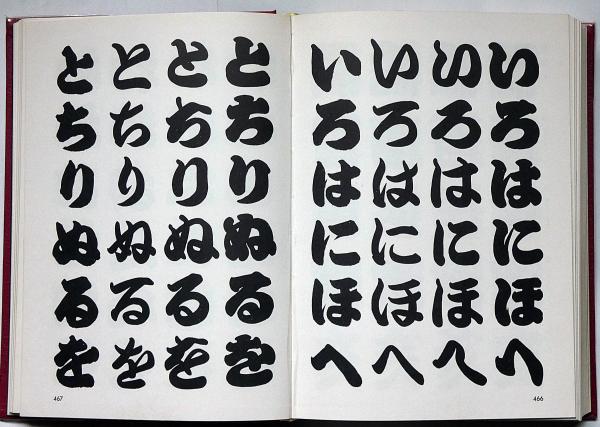 いろはにほへ
いろはにほへ
いろはにほへ
いろはにほへ
466
とちりぬるを
とちりぬるを
とちりぬるを
とちりぬるを
467